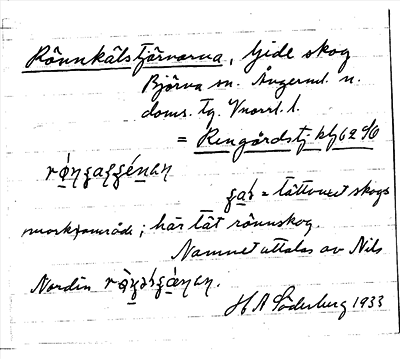 Rönnkälstjärnarna, Gide skog
Björna sn. Ångerml. n.
doms. tg. Vnorrl. l.
= Rengårdstj. kbl 62 SO
= tättvuxet skogs
markområde; här tät rönnskog.
Namnet uttalas av Nils
Nordin
H A Söderberg 1933